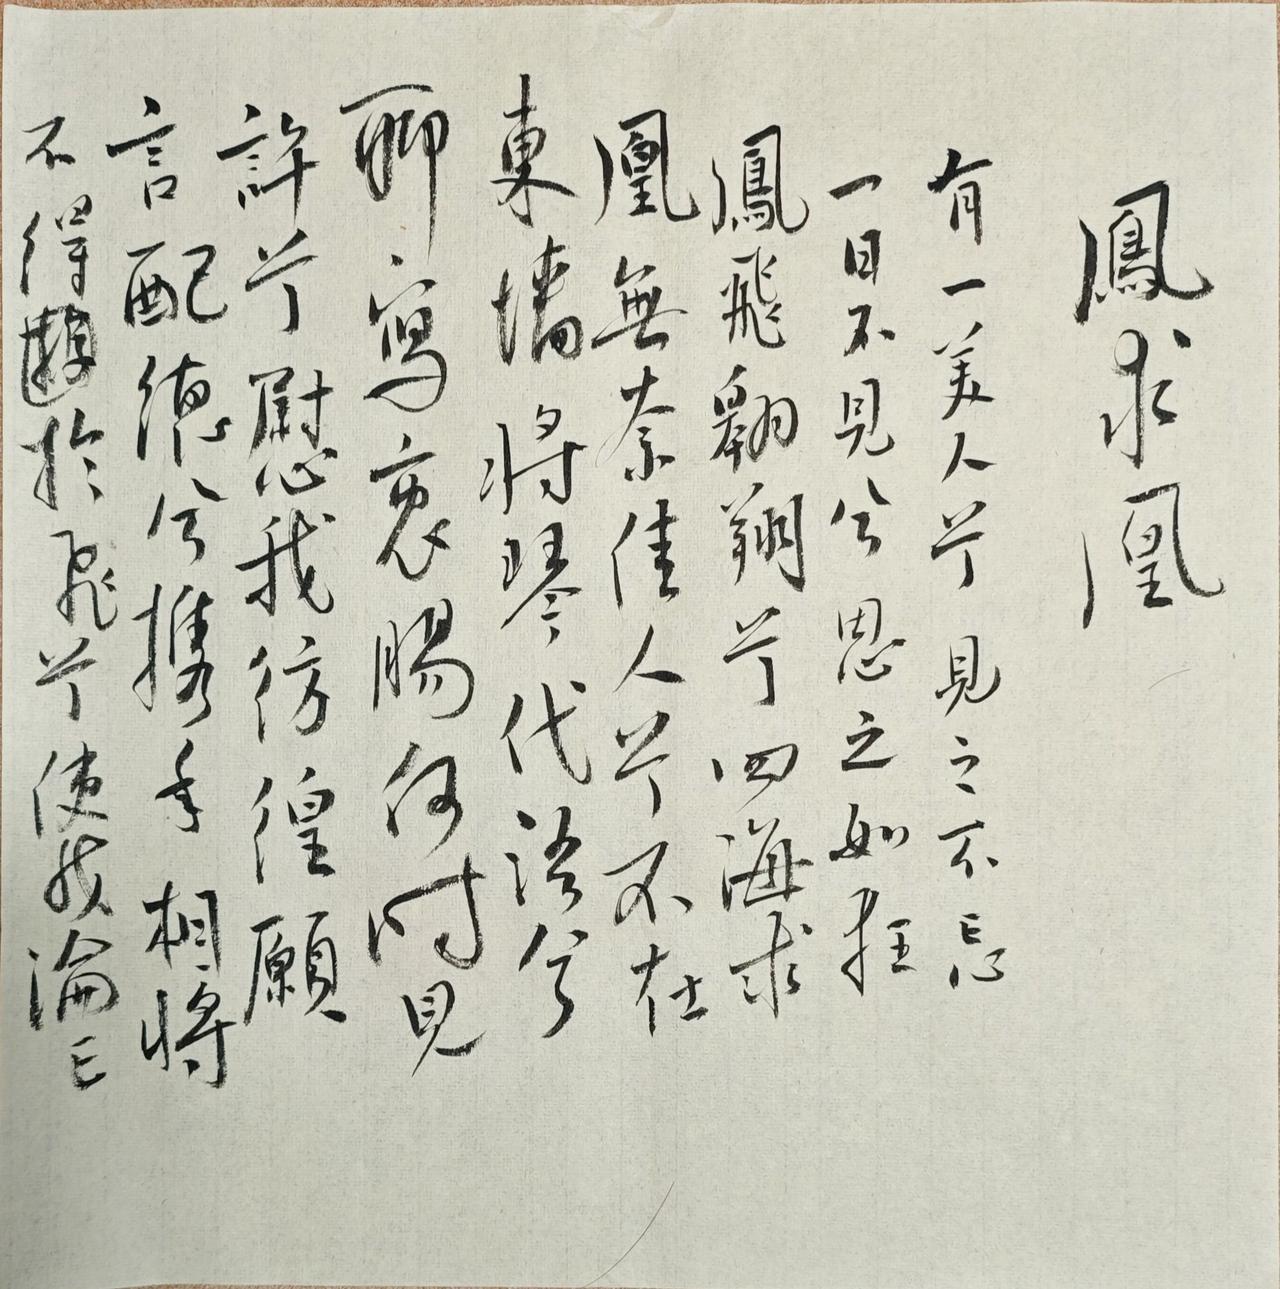 鳳求凰
有一美人兮見之不忘
一日不見兮思之如狂
鳳飛翱翔兮四海求
凰無奈佳人兮不在
東墻将琴代語兮
聊寫衷腸何时見
許兮慰我彷徨願
言配德兮携手相将
不得於飛兮使我淪亡